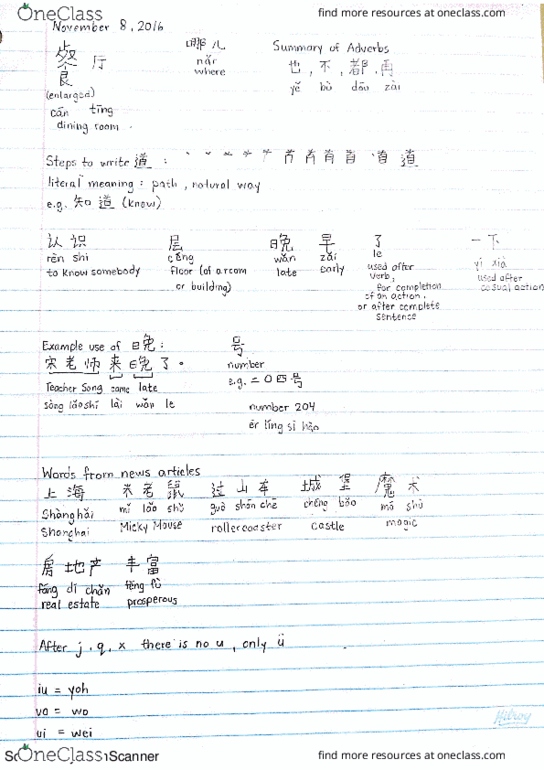 OneClass find more resources at oneclass.com
November 8, 2016
餐 厅
(enlarged)
cān tīng
dining room
哪儿
nǎr
where
Summary of Adverbs
也, 不, 都, 再
yě bù dōu zài
Steps to write 道 :
literal meaning : path, natural way
e.g. 知道 (know)
认识 层 晚 早 了 一下
rèn shi céng wǎn zǎi le yí xià
to know somebody floor (of a room or building) late early
used after verb, for completion of an action, or after complete sentence
used after casual action
Example use of 晚 :
宋老师来晚了。
Teacher Song came late
sòng lǎoshī lái wǎn le
号
number
e.g. 二〇四号
number 204
èr líng sì hào
Words from news articles
上海 米老鼠 过山车 城堡 魔术
Shànghǎi mǐ lǎo shǔ guò shān chē chéng bǎo mó shù
Shanghai Micky Mouse rollercoaster castle magic
房地产 丰富
fáng dì chǎn fēng fù
real estate prosperous
After j, q, x there is no u, only ü
iu = yoh
uo = wo
ui = wei
Hilroy
OneClass Scanner find more resources at oneclass.com